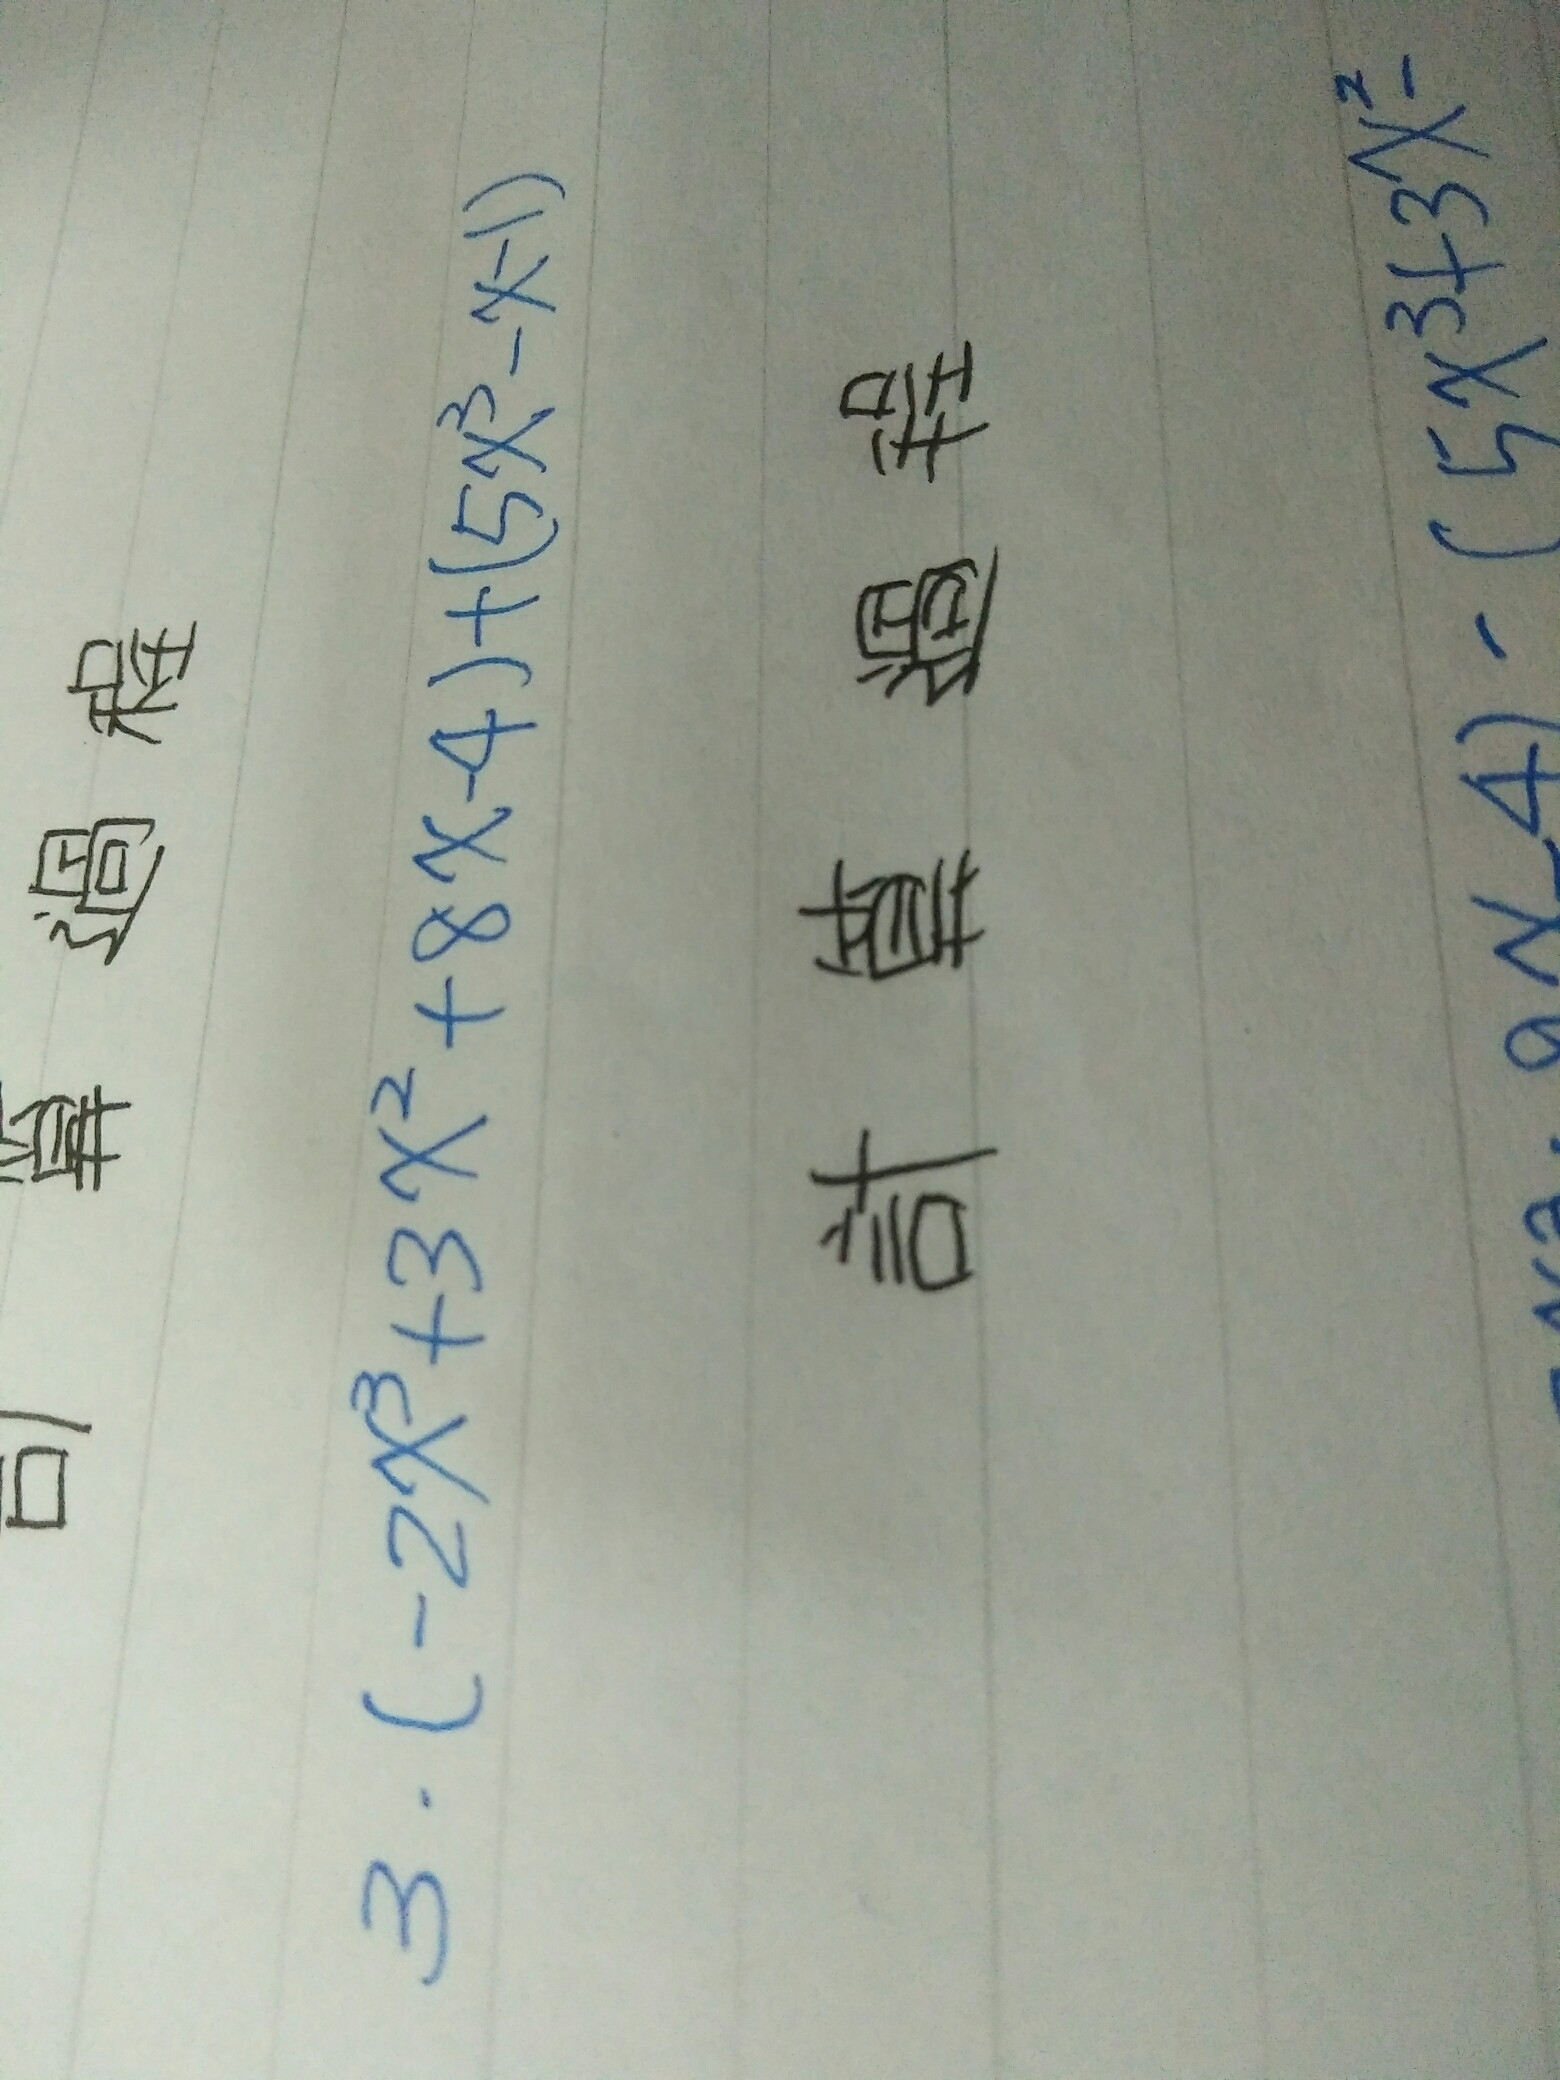 算過程
3.(-2x³+3x²+8x-4)+(5x³-x-1)
計算過程
-4)-(5x³+3x²-